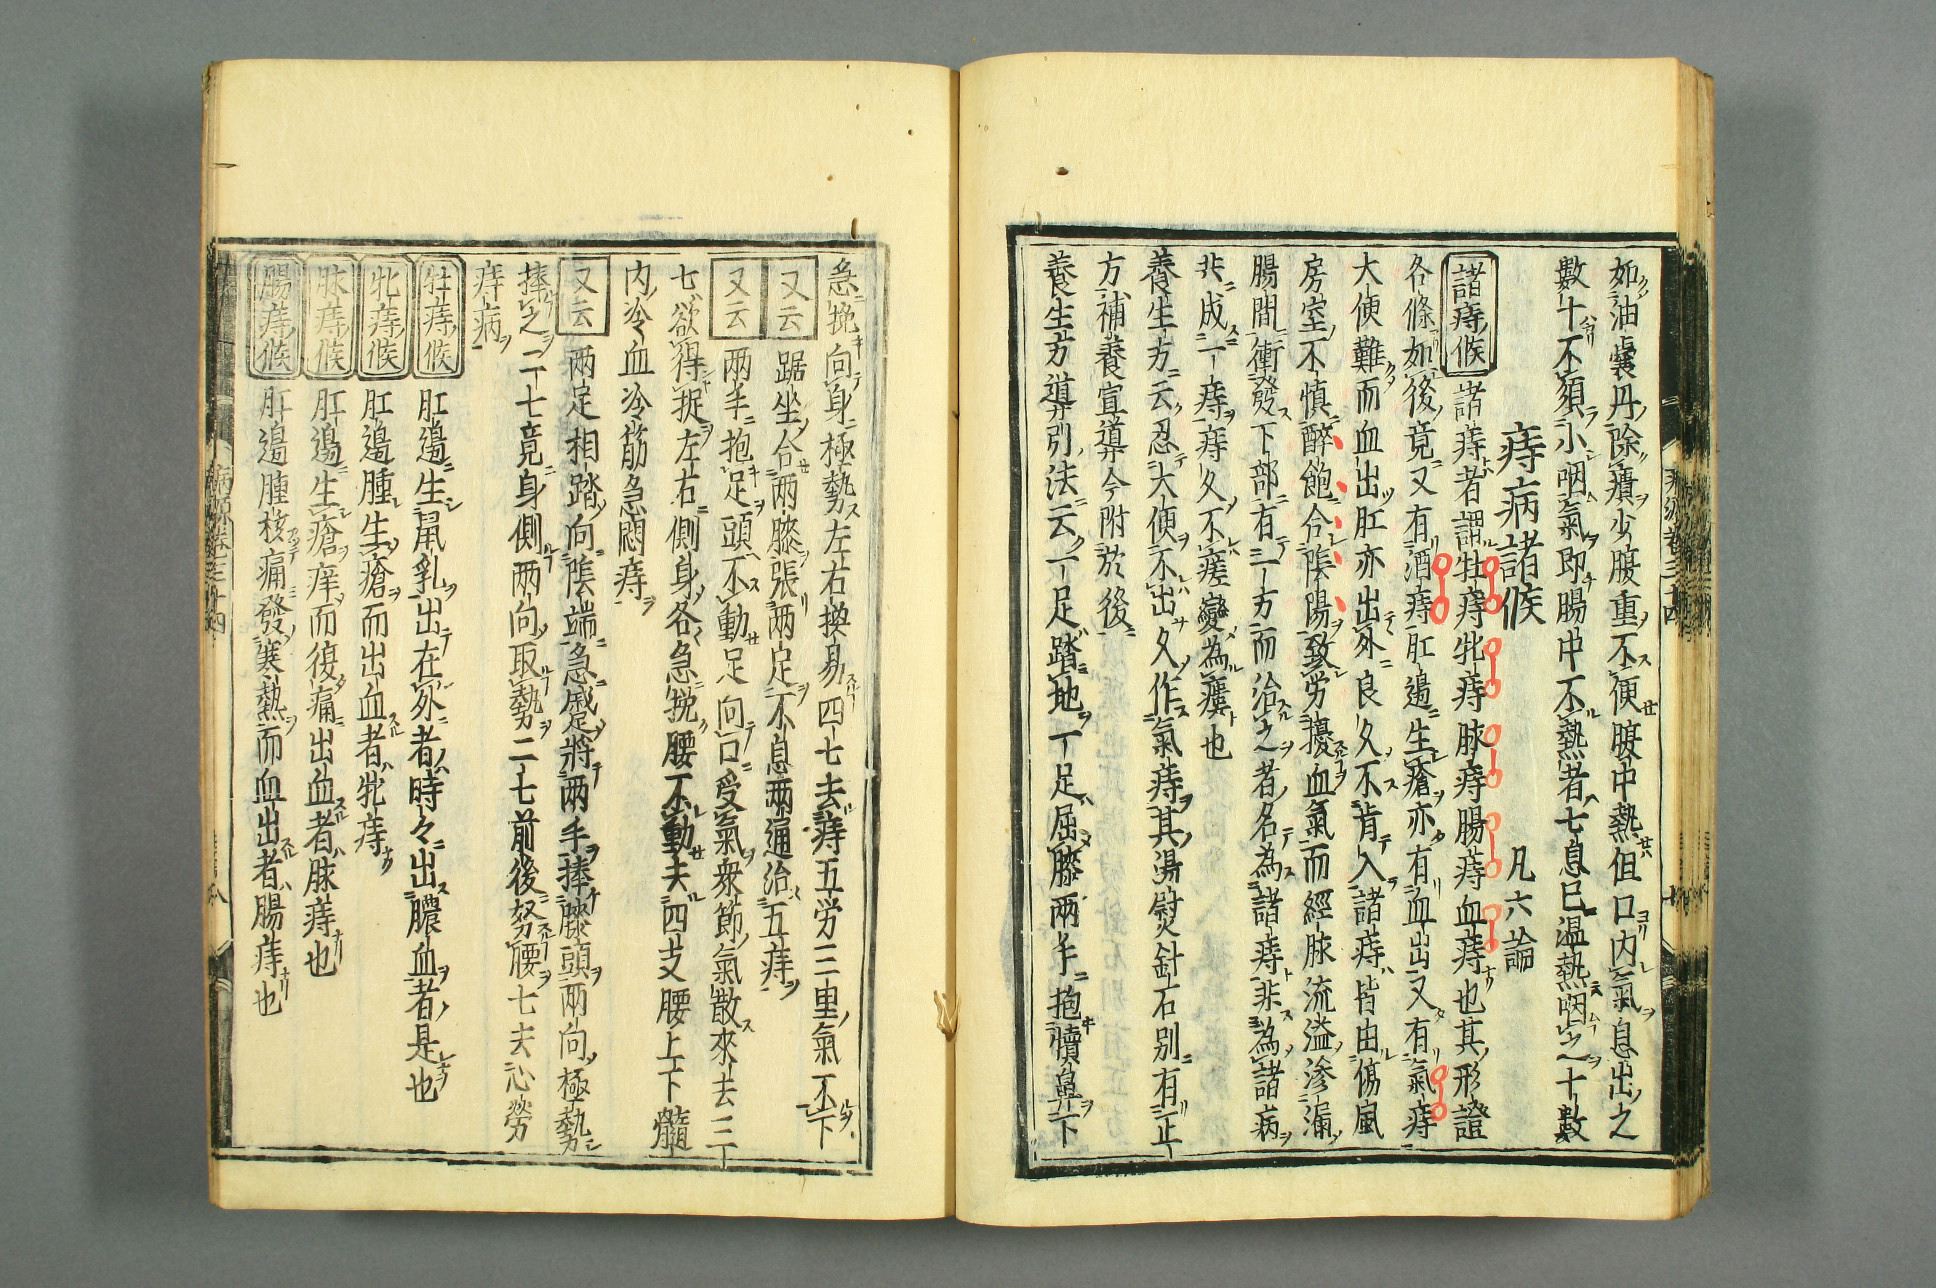 如油囊丹除癀少腹重不便腹中熱但口内氣息出之
數十不須小咽氣即腸中不熱者七息已温熱咽之十數
痔病諸候　凡六論
諸痔候　諸痔者謂牡痔牝痔脉痔腸痔血痔也其形證
各條如後竟又有酒痔肛邊生瘡亦有血出又有氣痔
大便難而血出肛亦出外良久不肯入諸痔皆由傷風
房室不慎醉飽合陰陽致労擾血氣而經脉流溢渗漏
腸間衝發下部有一方而治之者名為諸痔非為諸病
共成一痔痔久不瘥變為瘻也
養生方云忍大便不出久作氣痔其湯熨針石別有正
方補養宣導今附於後
養生方導引法云一足踏地一足屈膝兩手抱犢鼻下
急挽向身極勢左右換易四七去痔五労三里氣不下
又云　踞坐合兩膝張兩足不息兩通治五痔
又云　兩手抱足頭不動足向口受氣衆節氣散來去三
七欲得捉左右側身各急挽腰不動去四支腰上下髓
内冷血冷筋急悶痔
又云　兩足相踏向陰端急蹙將兩手捧膝頭兩向極勢
捧之二七竟身側兩向取勢二七前後努腰七去心勞
痔病
牡痔候　肛邊生鼠乳出在外者時々出膿血者是也
牝痔候　肛邊腫生瘡而出血者牝痔
脉痔候　肛邊生瘡痒而復痛出血者脉痔也
腸痔候　肛邊腫核痛發寒熱而血出者腸痔也